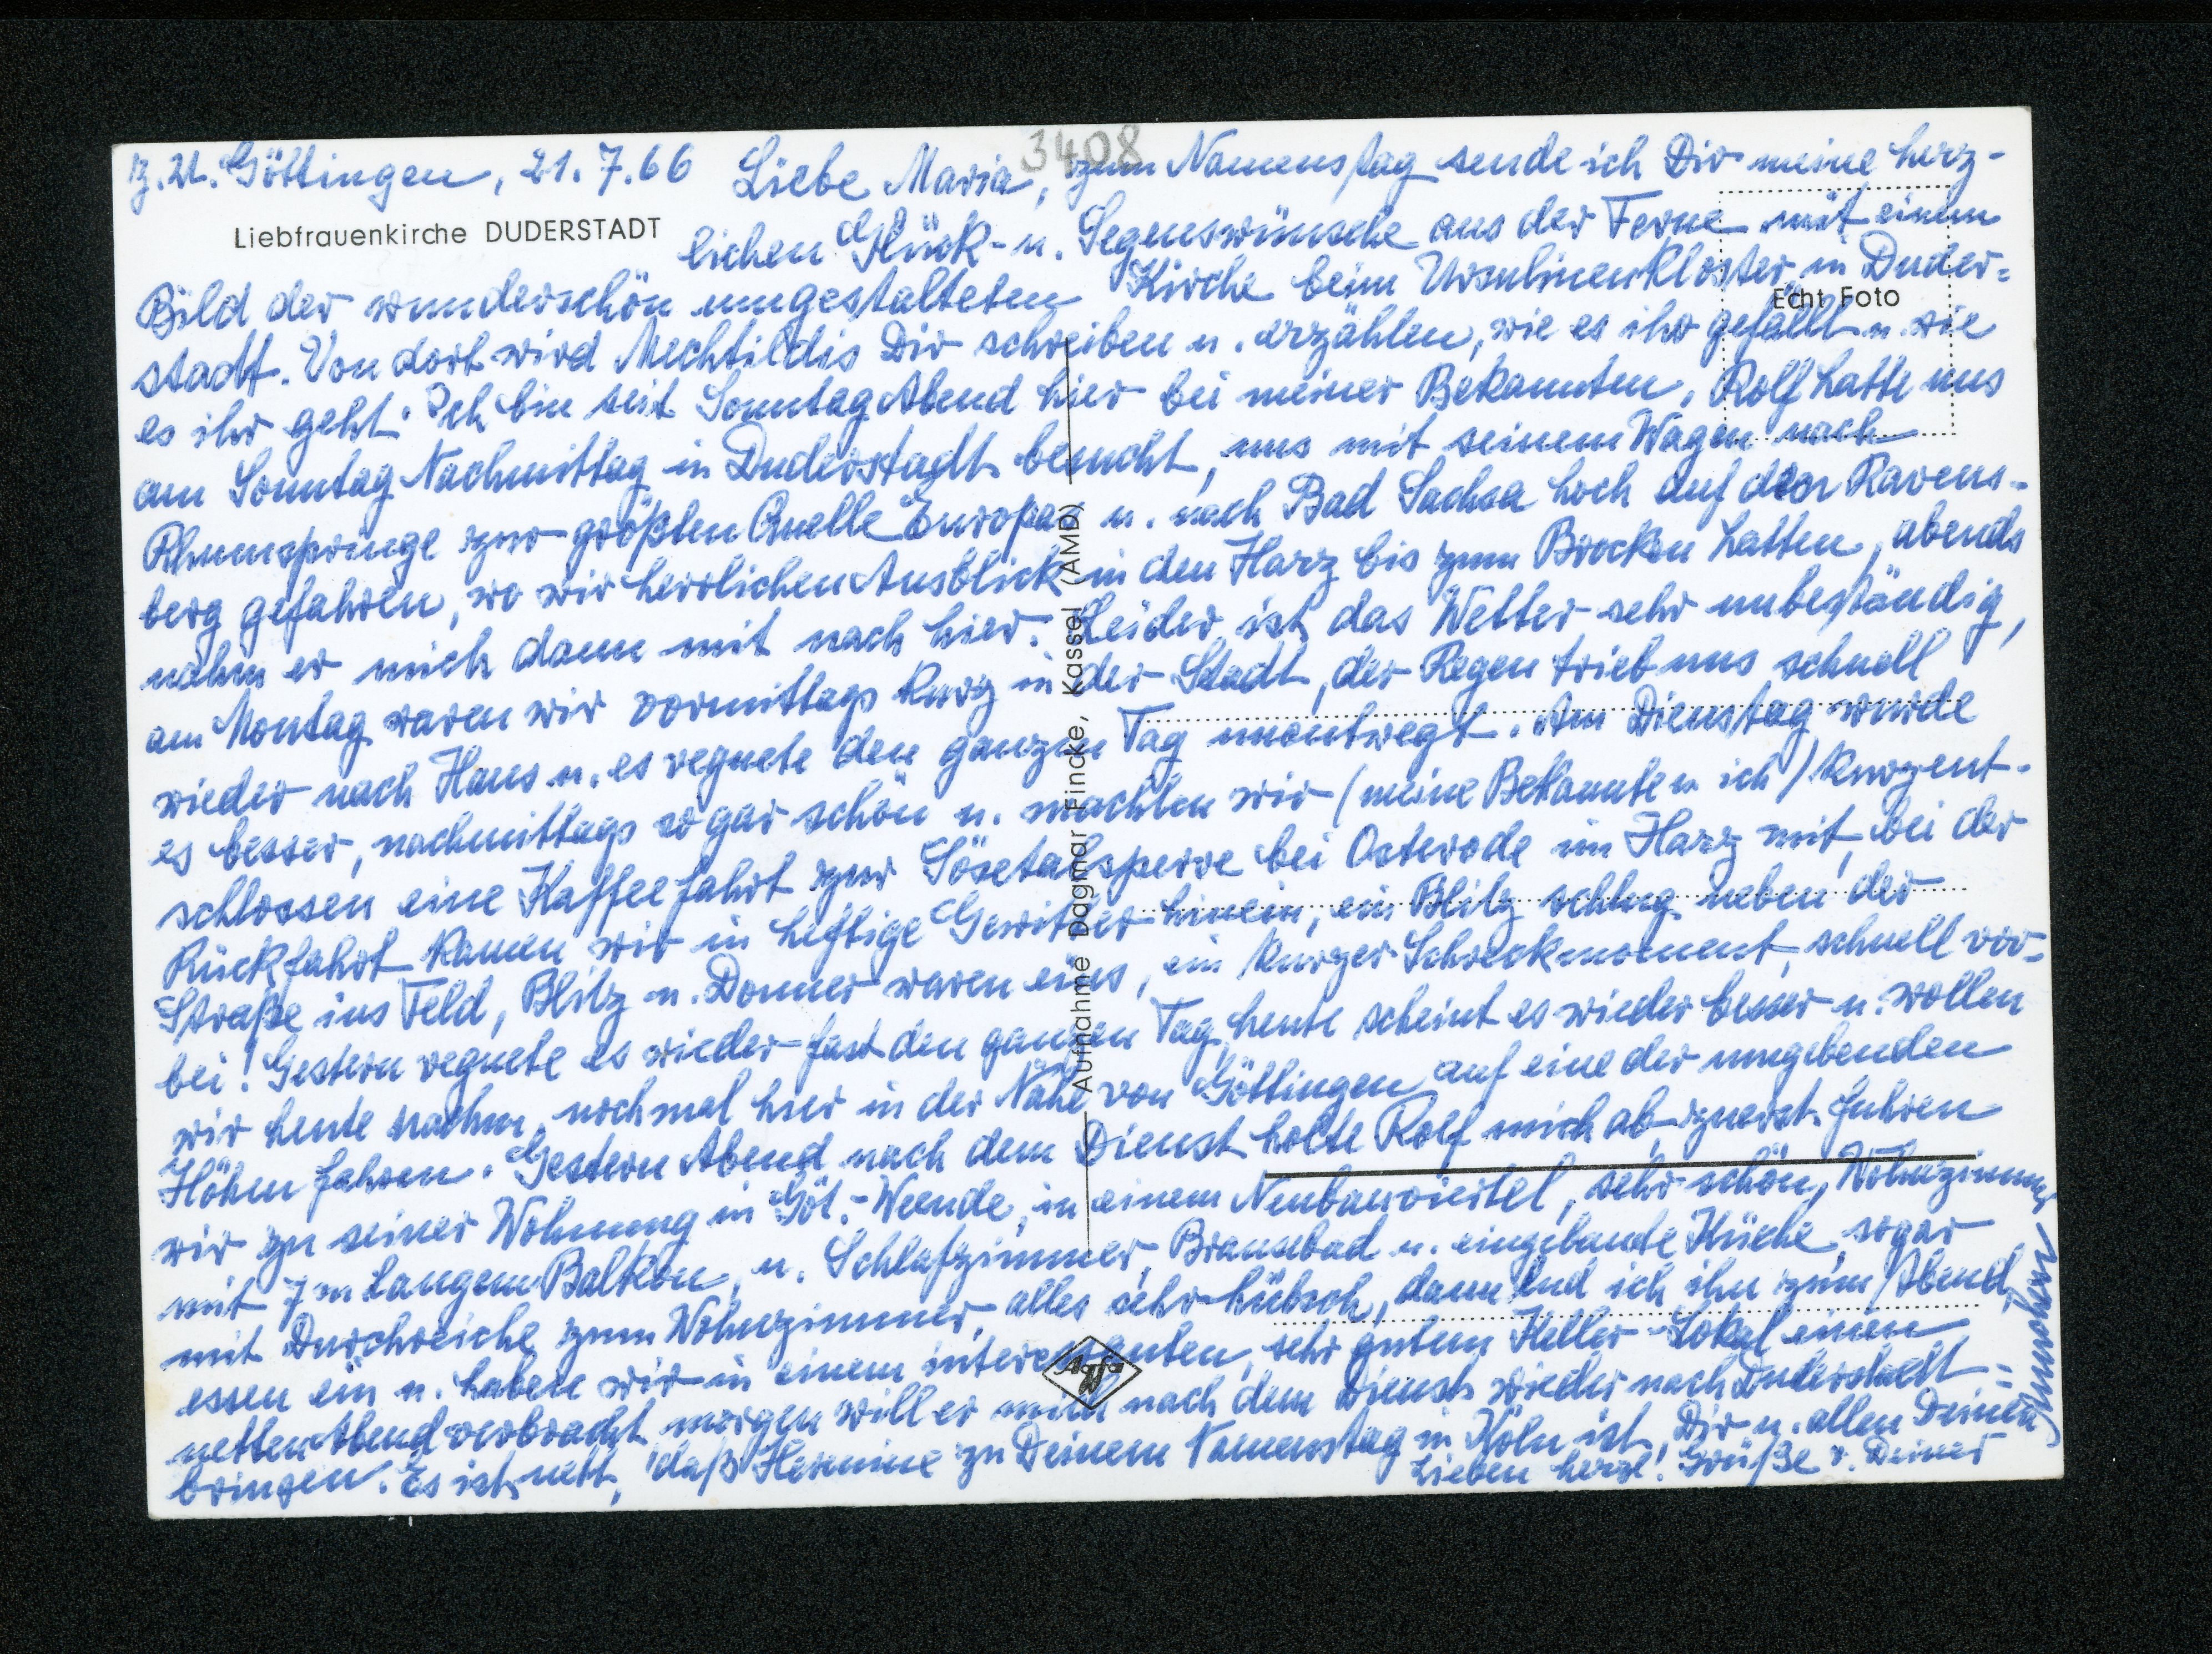 3408
z. Zt. Göttingen, 21.7.66 Liebe Maria, zum Namenstag sende ich Dir meine herz-
Liebfrauenkirche DUDERSTADT
lichen Glück- u. Segenswünsche aus der Ferne mit einem
Echt Foto
Bild der wunderschön umgestalteten Kirche beim Ursulinenkloster in Duder=
stadt. Von dort wird Mechtildis Dir schreiben u. erzählen, wie es ihr gefällt u. wie
es ihr geht. Ich bin seit Sonntag Abend hier bei meiner Bekannten. Rolf hatte uns
am Sonntag Nachmittag in Duderstadt besucht, uns mit seinem Wagen nach
Rhumspringe zur größten Quelle Europas u. nach Bad Sachsa hoch auf den Ravens-
berg gefahren, wo wir herrlichen Ausblick in den Harz bis zum Brocken hatten, abends
nahm er mich dann mit nach hier. Leider ist das Wetter sehr unbeständig,
am Montag waren wir vormittags kurz in der Stadt, der Regen trieb uns schnell
wieder nach Haus u. es regnete den ganzen Tag unentwegt. Am Dienstag wurde
es besser, nachmittags sogar schön u. machten wir (meine Bekannte u. ich) kurzent-
schlossen eine Kaffeefahrt zur Sösetalsperre bei Osterode im Harz mit, bei der
Rückfahrt kamen wir in heftige Gewitter hinein, ein Blitz schlug neben der
Straße ins Feld, Blitz u. Donner waren eins, ein kurzer Schreckmoment, schnell vor=
bei! Gestern regnete es wieder fast den ganzen Tag, heute scheint es wieder besser u. wollen
wir heute nachm. nochmal hier in der Nähe von Göttingen auf eine der umgebenden
Höhen fahren. Gestern Abend nach dem Dienst holte Rolf mich ab, zuerst fuhren
wir zu seiner Wohnung in Göt.-Weende, in einem Neubauviertel, sehr schön, Wohnzimmer
mit 7 m langem Balkon, u. Schlafzimmer, Brausebad u. eingebaute Küche, sogar
mit Durchreiche zum Wohnzimmer, alles sehr hübsch, dann lud ich ihn zum Abend=
essen ein u. haben wir in einem interessanten, sehr gutem Keller-Lokal einen
netten Abend verbracht, morgen will er mich nach dem Dienst wieder nach Duderstadt
bringen. Es ist nett, daß Hermine zu Deinem Namenstag in Köln ist, Dir u. allen Deinen
Lieben herzl. Grüße v. Deiner
Aufnahme Dagmar Fincke, Kassel (AMD)
Agfa